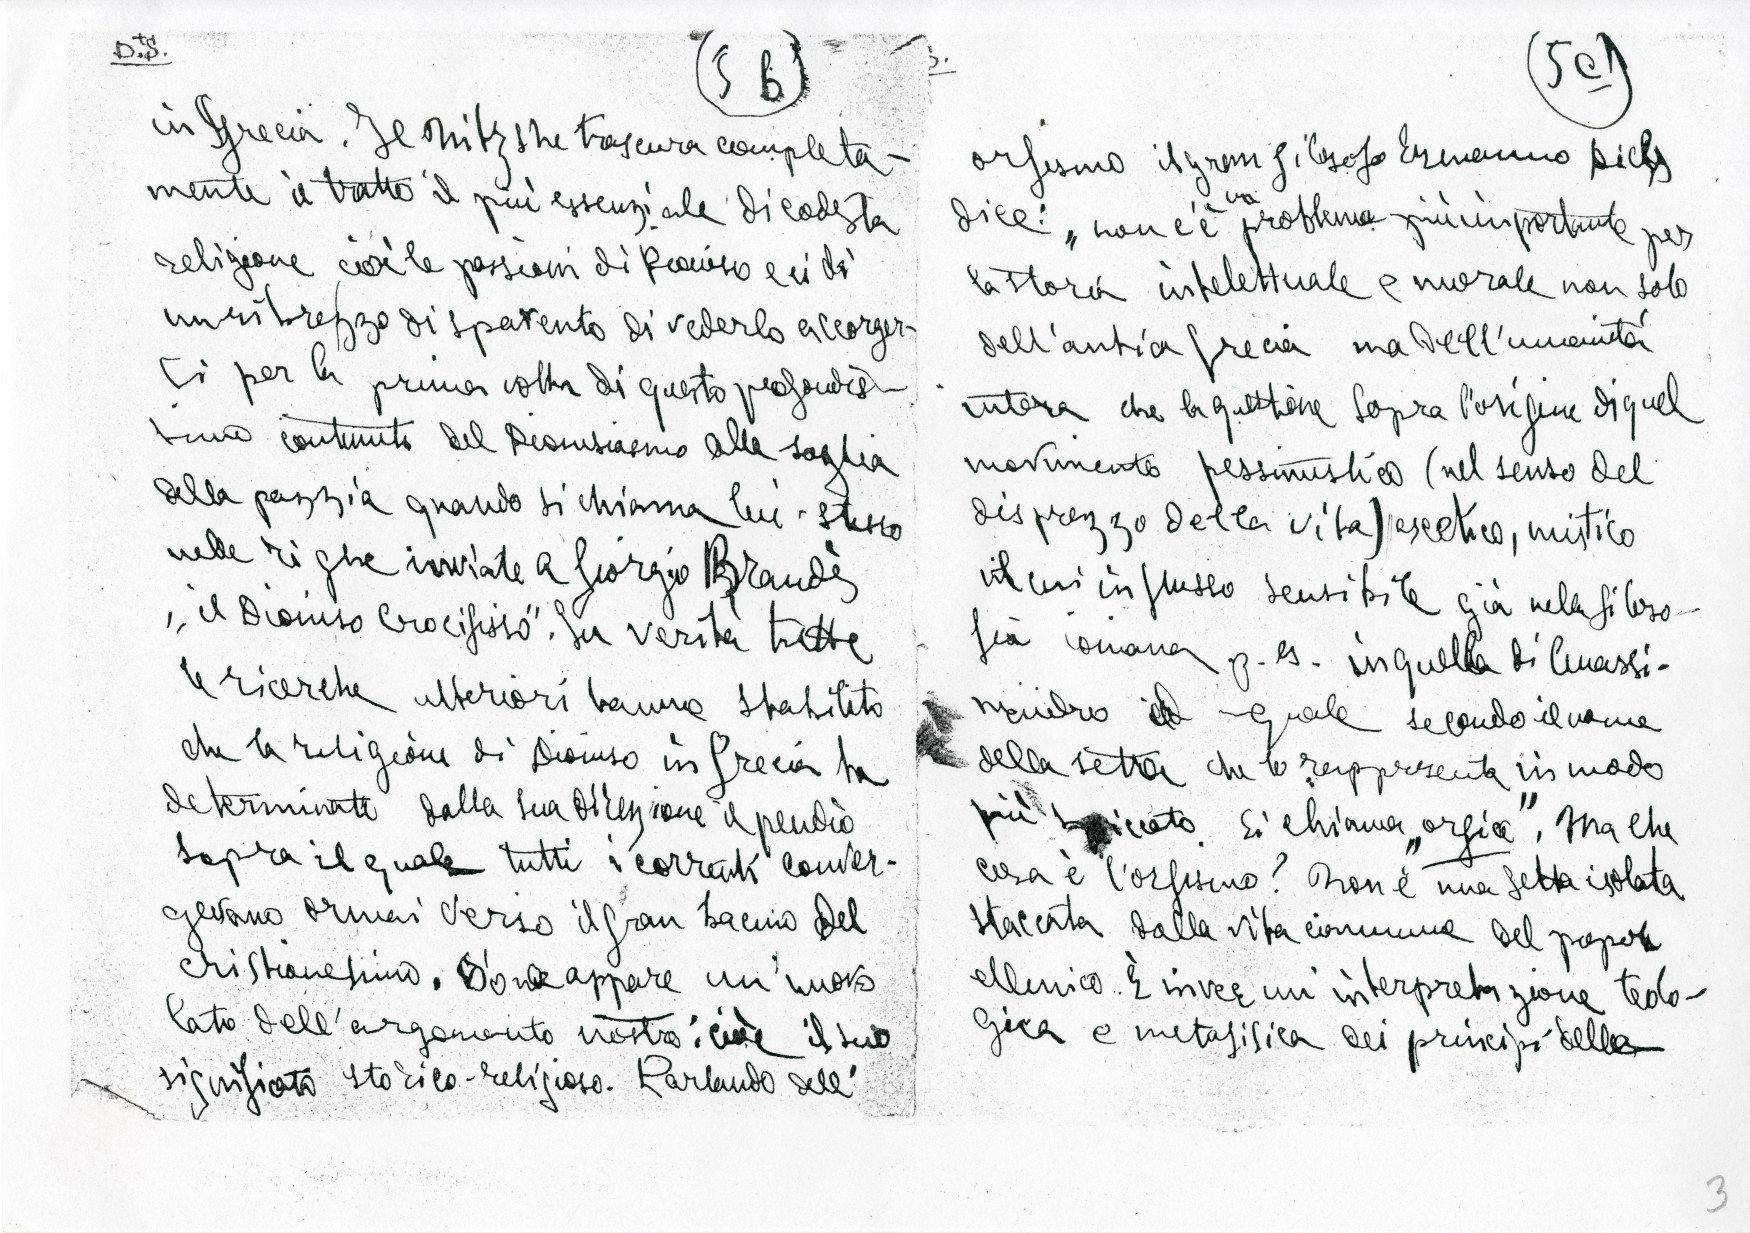 D.ts.
5 b
in Grecia. Il Nitzshe trascura completa-
mente il tratto il più essenziale di codesta
religione cioè le passioni di Dioniso e ci dà
un ribrezzo di spavento di vederlo accorger-
si per la prima volta di questo profondis-
simo contenuto del Dionisiasmo alla soglia
della pazzia quando si chiama lui-stesso
nelle righe inviate a Giorgio Brandès
„il Dioniso Crocifisso". In verità tutte
le ricerche ulteriori hanno stabilito
che la religione di Dioniso in Grecia ha
determinato dalla sua direzione il pendio
sopra il quale tutti i correnti conver-
gevano ormai verso il gran bacino del
cristianesimo. D'onde appare un'nuovo
lato dell'argomento nostro: cioè il suo
significato storico-religioso. Parlando dell'
5 c
orfismo il gran filosofo Ermanno Diels
dice: „non c'è un problema più importante per
la storia intelettuale e morale non solo
dell'antica Grecia ma dell'umanità
intera che la questione sopra l'origine di quel
movimento pessimistico (nel senso del
disprezzo della vita) ascetico, mistico
il cui influsso sensibile già nella filoso-
fia ioniana p. es. in quella di Anassi-
mandro il quale secondo il nome
della setta che lo rappresenta in modo
più spiccato si chiama „orfico". Ma che
cosa è l'orfismo? Non è una setta isolata
staccata dalla vita commune del popolo
ellenico. È invece un'interpretazione teolo-
gica e metafisica dei principi della
3